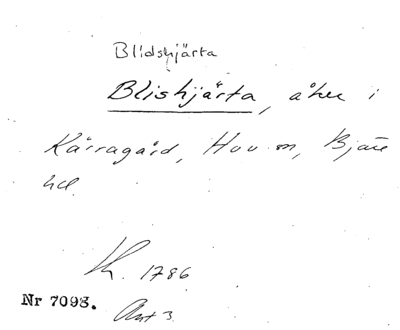 Blidshjärta
Blishjärta, åker i
Kärragård, Hov sn, Bjäre
hd.
Lh. 1786
Nr 7093. Akt 3.